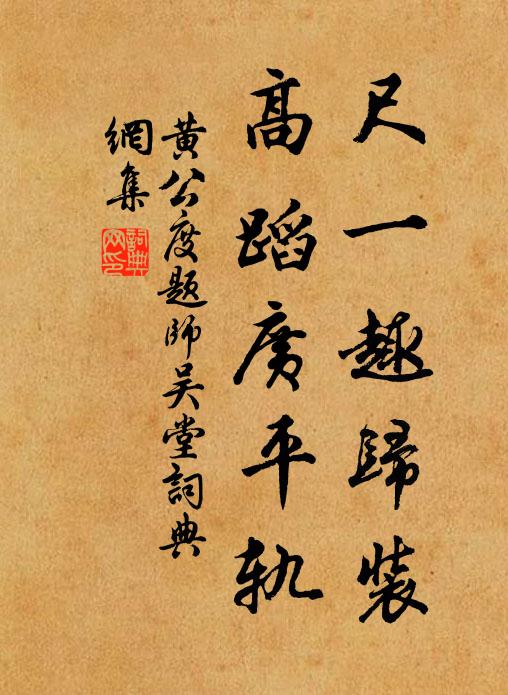 尺一趣歸裝
高蹈廣平軌
黄公度題師吴堂詞典
網集
詞典網印